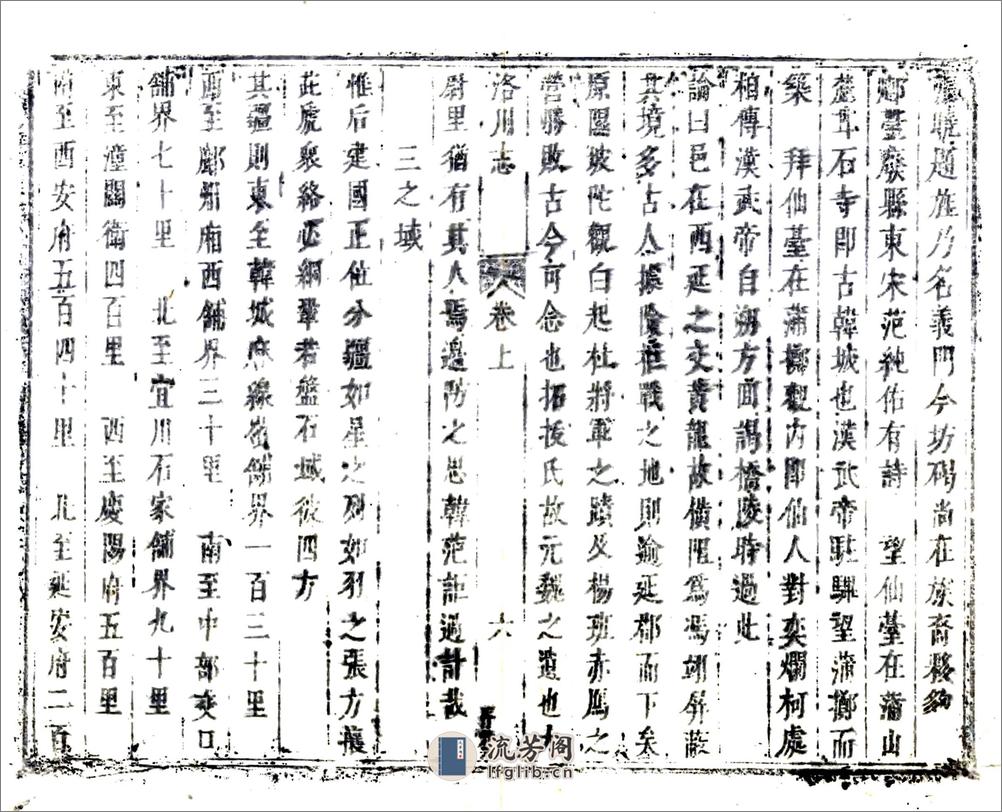 曉題旌乃名義門今坊碣尚在族裔夥夠
鄜臺廢縣東宋范純佑有詩　望仙臺在蒲山
麓耳石寺即古韓城也漢武帝駐驆望蒲擲而
築　拜仙臺在蒲擲觀內即仙人對奕爛柯處
相傳漢武帝自朔方面謁橋陵時過此
論曰邑在西延之交黃龍故橫阻爲馮翊屏蔽
其境多古人據險壯戰之地則逾延鄜而下矣
原隰坡陀觀白起杜將軍之蹟及楊班赤鳫之
營勝敗古今可念也拓拔氏故元魏之遺也
洛川志
卷上
六
尉里猶有其人焉邊防之思韓范詎過計哉
三之域
惟后建國正位分疆如星之列如羽之張方襄
此虎衆絡必綱鞏若盤石域彼四方
其疆則東至韓城麻線嶺舖界一百三十里
西至鄜州廂西舖界三十里　南至中部交口
舖界七十里　北至宜川石家舖界九十里
東至潼關衛四百里　西至慶陽府五百里
南至西安府五百四十里　北至延安府二百
流芳阁
lfglib.cn